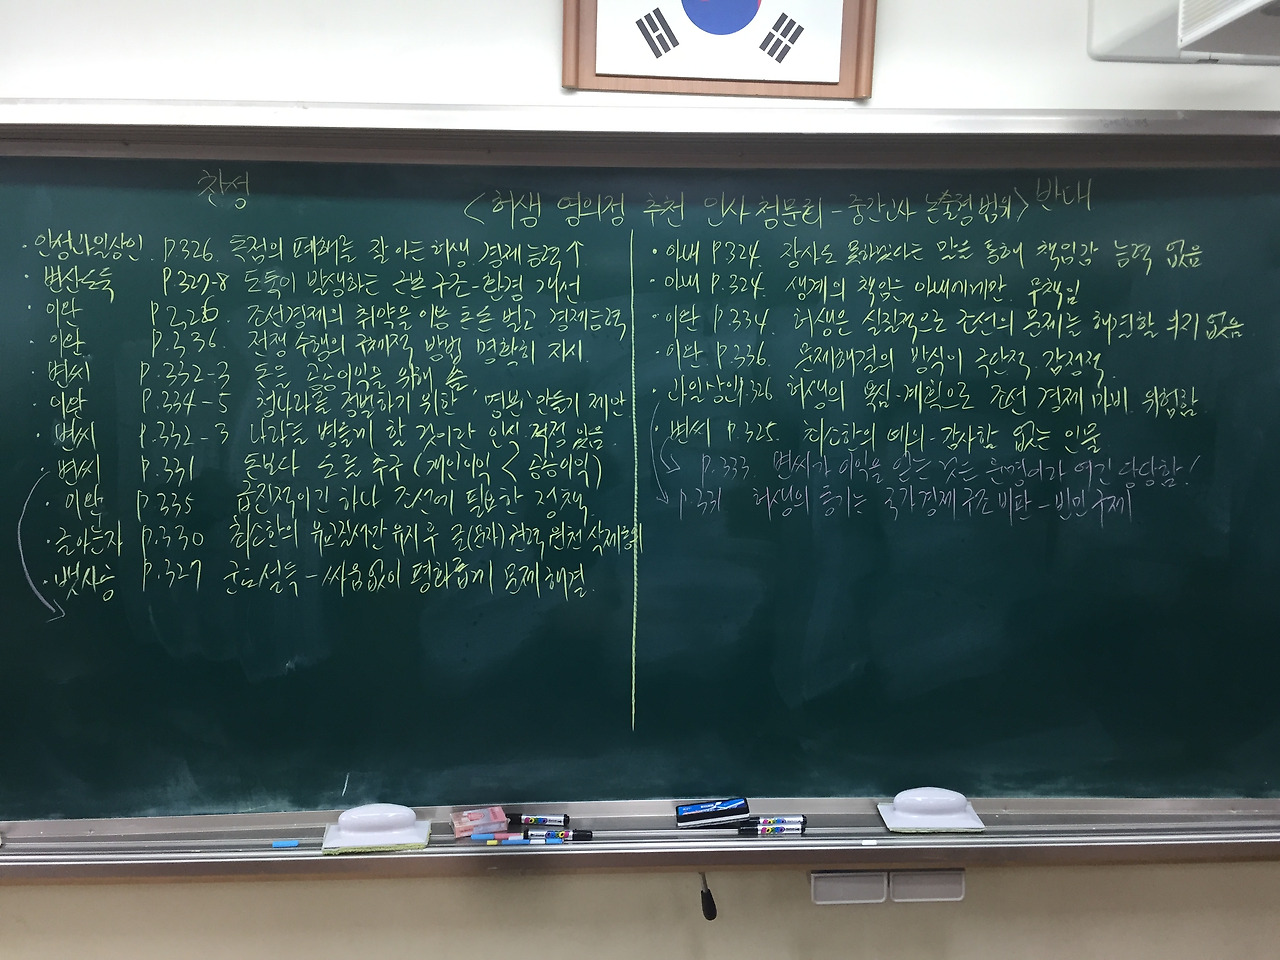 찬성
<허생 영의정 추천 인사청문회 - 중간고사 논술형 범위>
반대
· 안성과일상인 P.326. 독점의 폐해를 잘 아는 허생. 경제능력↑
· 변산도둑 P.327-8 도둑이 발생하는 근본 구조-환경 개선
· 이완 P.326. 조선경제의 취약을 이용 돈을 벌고 경제능력
· 이완 P.336. 전쟁 수행의 구체적 방법 명확히 지시.
· 변씨 P.332-3 돈을 공공이익을 위해 씀
· 이완 P.334-5 청나라를 정벌하기 위한 '명분' 만들기 제안
· 변씨 P.332-3 나라를 병들게 할 것이라 인식. 걱정 있음
· 변씨 P.331 돈보다 도를 추구 (개인이익 < 공공이익)
· 이완 P.335 급진적이긴 하나 조선에 필요한 정책
· 글아는자 P.330 최소한의 유교질서만 유지 후 글(문자)권력 원천 삭제
· 뱃사공 P.327 군도 설득 - 싸움없이 평화롭게 문제해결.
· 아내 P.324. 장사도 못하겠냐는 말을 통해 책임감 능력 없음
· 아내 P.324. 생계의 책임은 아내에게만. 무책임
· 이완 P.334. 허생은 실질적으로 조선의 문제는 해결할 의지 없음
· 이완 P.336. 문제해결의 방식이 극단적 감정적
· 과일상인.326 허생의 욕심-계획으로 조선 경제 마비. 위험함.
· 변씨 P.325. 최소한의 예의-감사함 없는 인물
P.333. 변씨가 이익을 얻는 것은 운명이라 여긴 당당함!
P.331 허생의 동기는 국가경제구조비판-빈민구제